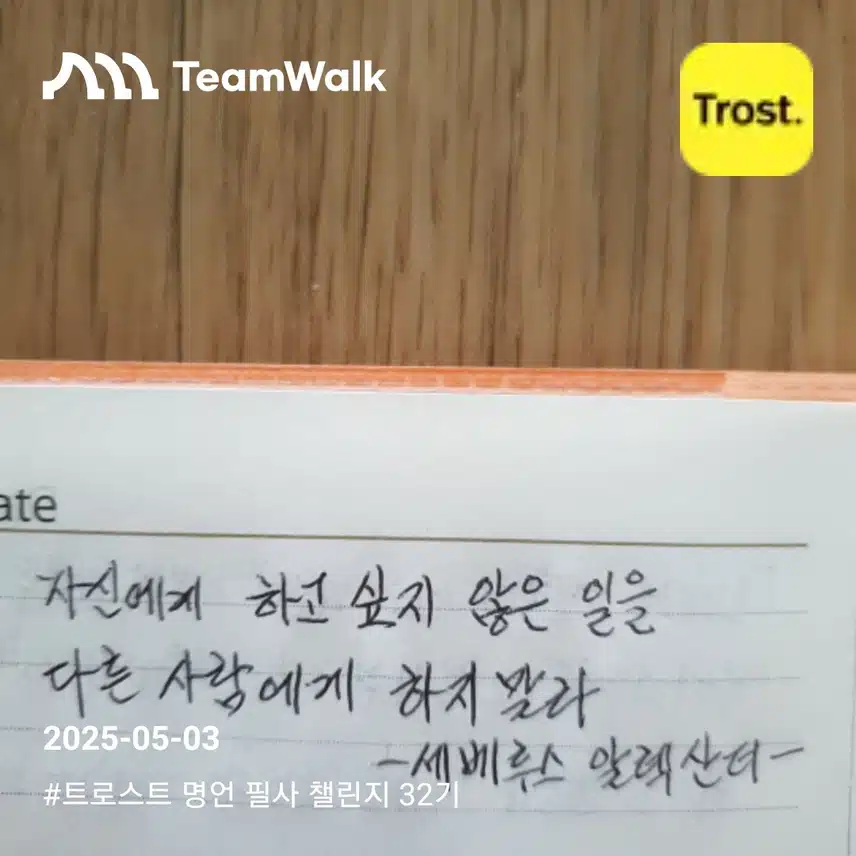 TeamWalk
Trost.
ate
자신에게 하고 싶지 않은 일을
다른 사람에게 하지 말라
-세베루스 알렉산더-
2025-05-03
#트로스트 명언 필사 챌린지 32기